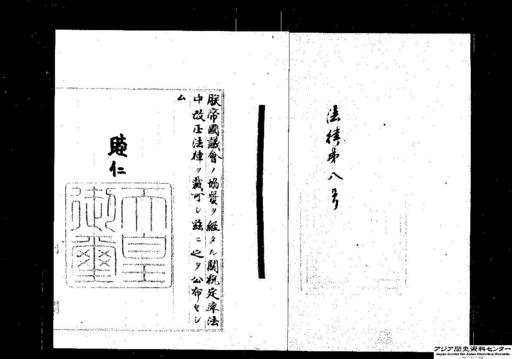 法律第八号
朕帝國議會ノ協賛ヲ經タル關税定率法
中改正法律ヲ裁可シ茲ニ之ヲ公布セシ
ム
睦仁
天皇
御璽
アジア歴史資料センター
Japan Center for Asian Historical Records